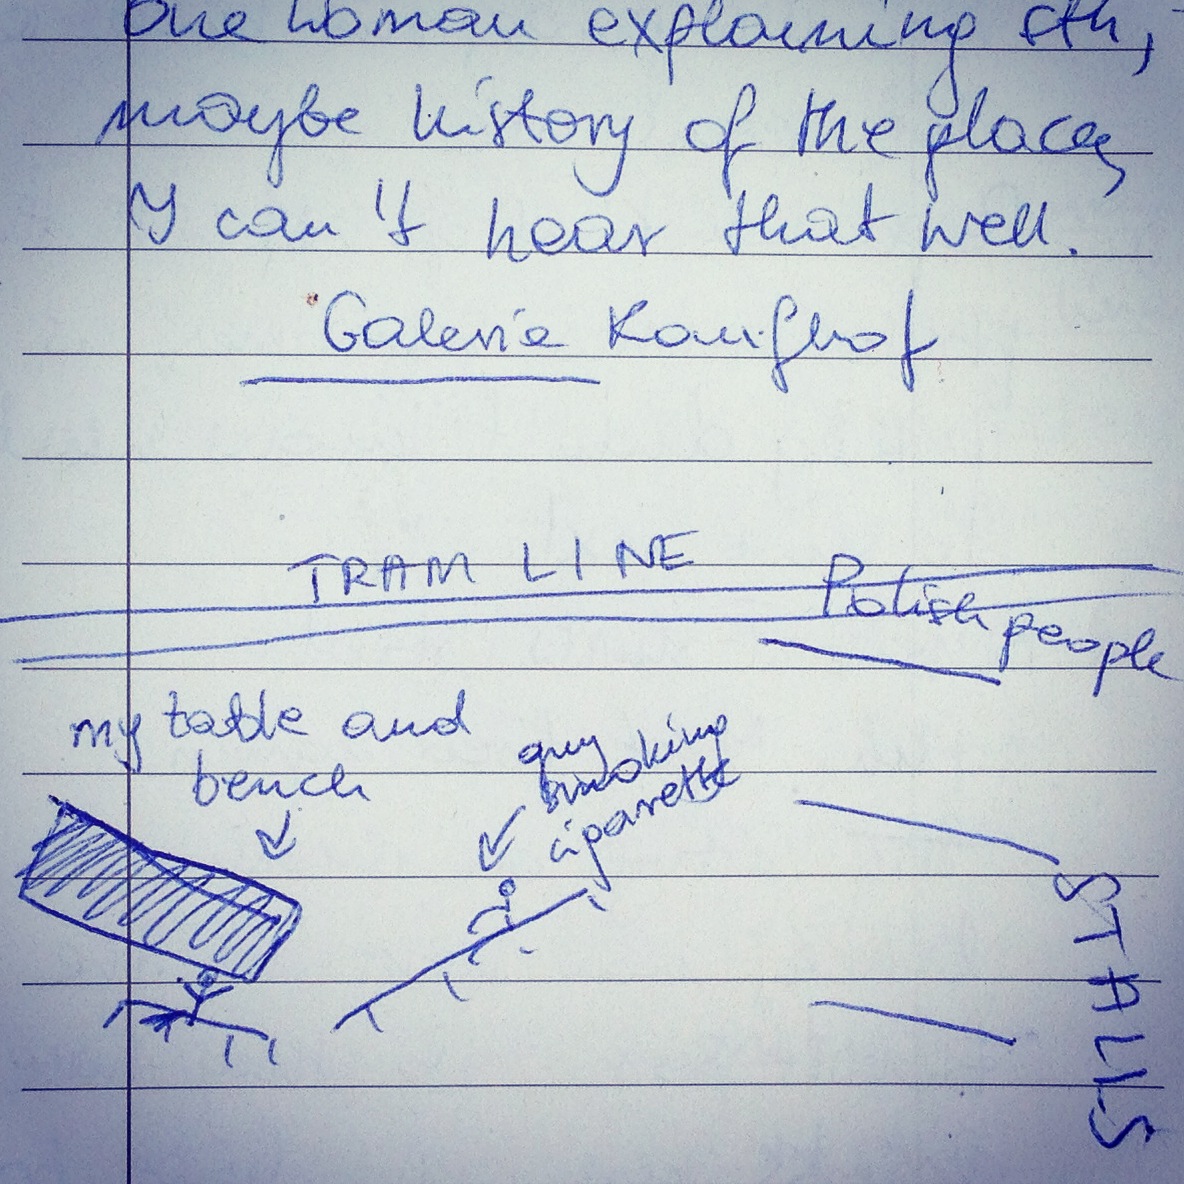 one woman explaining sth,
maybe history of the place,
I can't hear that well.
Galeria Kaufhof
TRAM LINE
Polish people
my table and
bench
guy
smoking
cigarette
STALLS